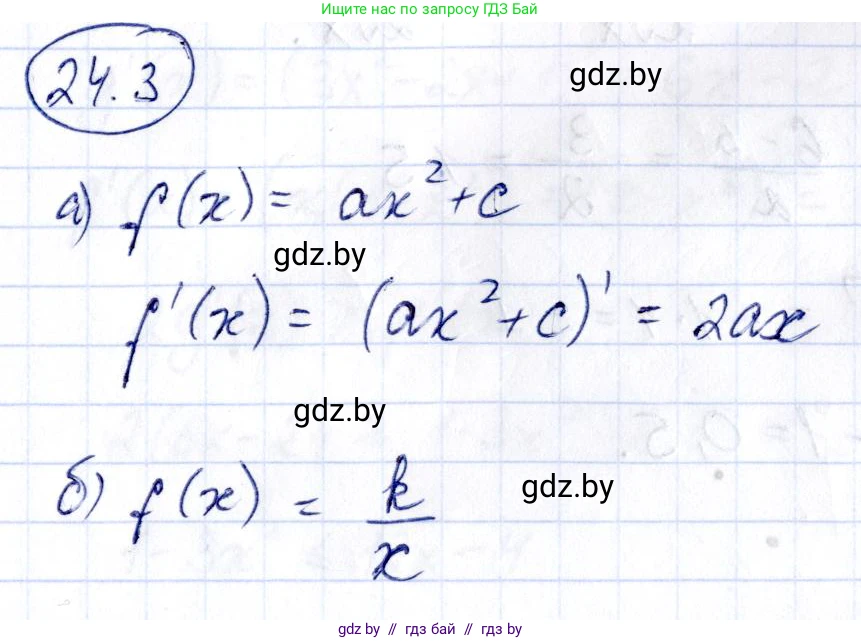 Ищите нас по запросу ГДЗ Бай
24.3
gdz.by
а) f(x) = ax² + c
gdz.by
f'(x) = (ax² + c)' = 2ax
gdz.by
б) f(x) = k/x
gdz.by
gdz.by // гдз бай // гдз by